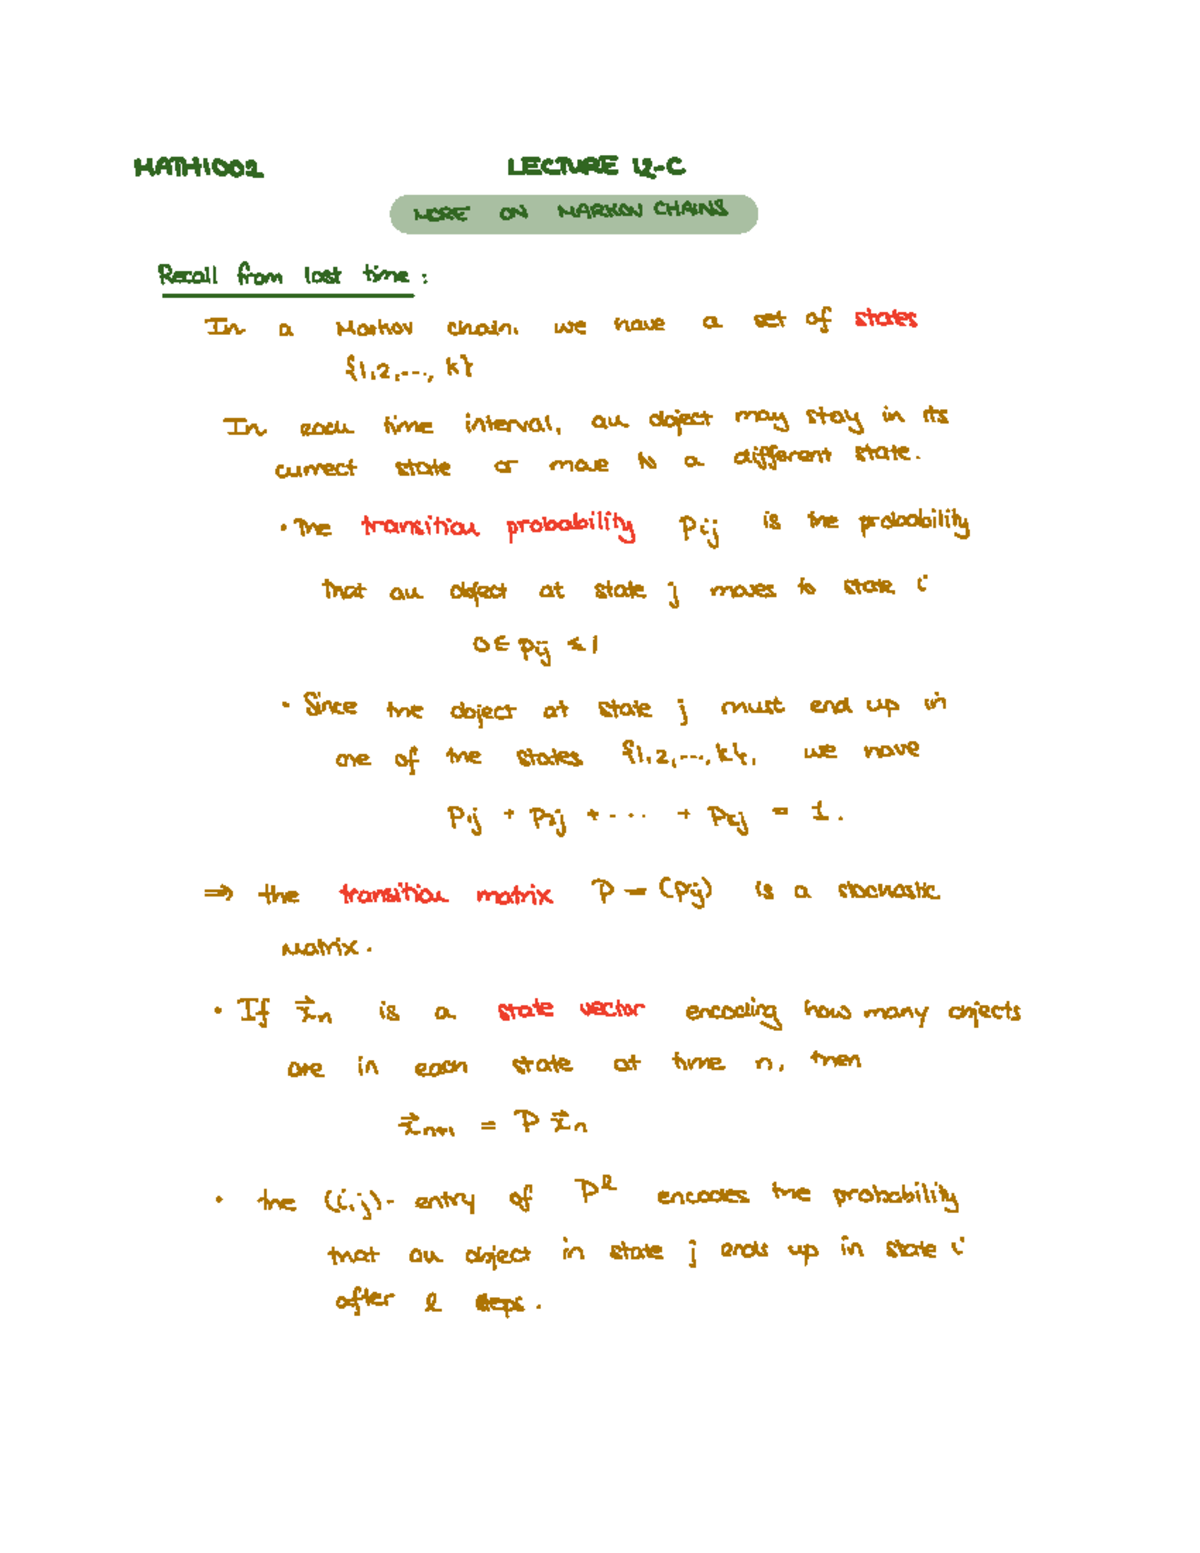 MATH1002 LECTURE 12-C
MORE ON MARKOV CHAINS
Recall from last time :
In a Markov chain, we have a set of states
{1,2,..., k}
In each time interval, an object may stay in its
current state or move to a different state.
• The transition probability Pij is the probability
that an object at state j moves to state i
0 ≤ Pij ≤ 1
• Since the object at state j must end up in
one of the states {1,2,...,k}, we have
P1j + P2j + ... + Pkj = 1.
⇒ the transition matrix P = (Pij) is a stochastic
matrix.
• If x⃗n is a state vector encoding how many objects
are in each state at time n, then
x⃗n+1 = P x⃗n
• the (i,j)- entry of P^ℓ encodes the probability
that an object in state j ends up in state i
after ℓ steps.